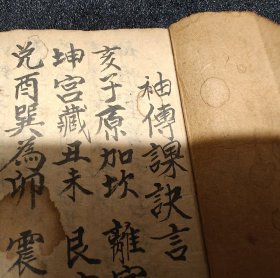 袖傳課訣言
亥子原加坎 離宮
坤宮藏丑未 艮
兑酉巽為卯 震